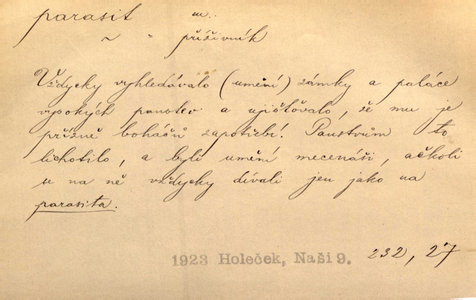 parasit m.
~ " příživník
Vždycky vyhledávalo (umění) zámky a paláce
vysokých panstev a ujišťovalo, že mu je
přízně boháčů zapotřebí. Panstvům to
lichotilo, a byli umění mecenáši, ačkoli
se na ně vždycky dívali jen jako na
parasita.
1923 Holeček, Naši 9. 232, 27